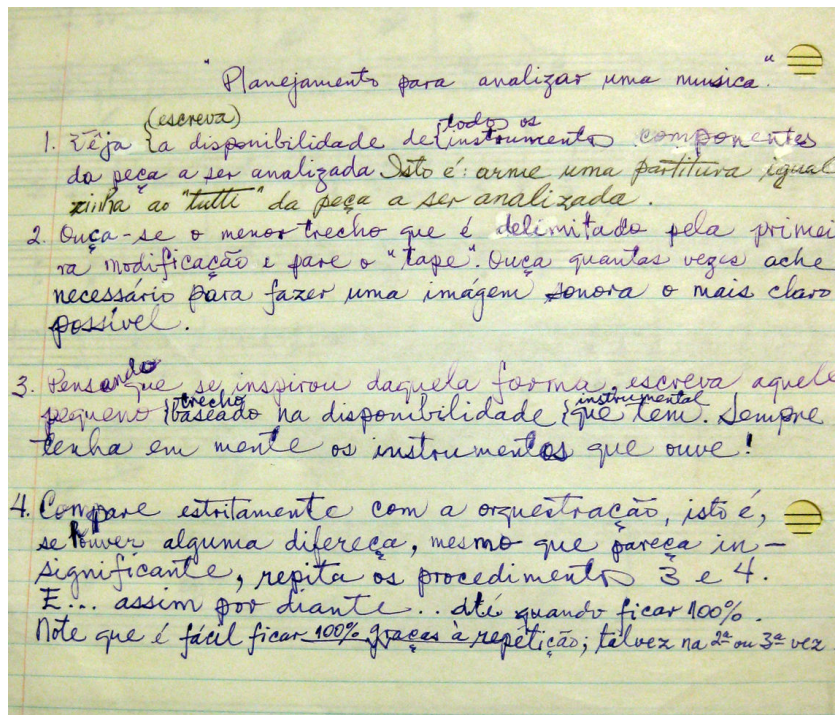 "Planejamento para analizar uma musica."
(escreva)
1. Veja {a disponibilidade de {todo os instrumentos componentes
da peça a ser analizada Isto é: arme uma partitura igual
zinha ao "tutti" da peça a ser analizada.
2. Ouça-se o menor trecho que é delimitado pela primei
ra modificação e pare o "tape". Ouça quantas vezes ache
necessário para fazer uma imágem sonora o mais claro
possível.
3. Pensando que se inspirou daquela forma, escreva aquele
pequeno {trecho baseado na disponibilidade {instrumental que tem. Sempre
tenha em mente os instrumentos que ouve!
4. Compare estritamente com a orquestração, isto é,
se houver alguma difereça, mesmo que pareça in-
significante, repita os procedimentos 3 e 4.
E... assim por diante... até quando ficar 100%.
Note que é fácil ficar 100% graças à repetição; talvez na 2ª ou 3ª vez